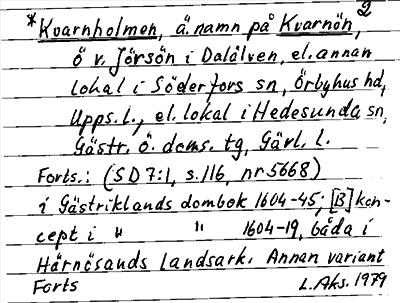 2
*Kvarnholmen, ä. namn på Kvarnön,
ö v. Jörsön i Dalälven, el. annan
lokal i Söderfors sn, Örbyhus hd,
Upps. l., el. lokal i Hedesunda sn,
Gästr. ö. doms. tg, Gävl. l.
Forts.: (SD 7:1, s. 116, nr 5668)
i Gästriklands dombok 1604-45; [B] kon-
cept i " " 1604-19, båda i
Härnösands Landsark. Annan variant
Forts L. Aks. 1979